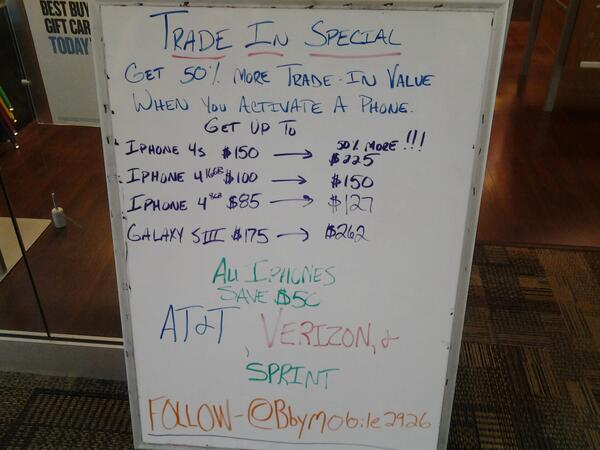 BEST BUY
GIFT CAR
TODAY
TRADE IN SPECIAL
GET 50% MORE TRADE-IN VALUE
WHEN YOU ACTIVATE A PHONE.
GET UP TO
50% MORE !!!
IPHONE 4s $150 → $225
IPHONE 4 16GB $100 → $150
IPHONE 4 8GB $85 → $127
GALAXY SIII $175 → $262
All IPHONES
SAVE $50
AT&T, VERIZON, &
SPRINT
FOLLOW-@Bbymobile2926